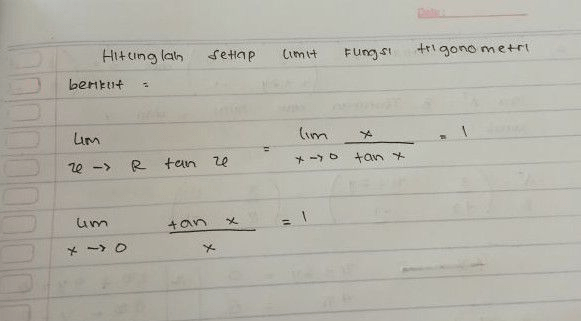 Date:
Hitunglah setiap limit fungsi trigonometri
berikut =
lim x → R tan x = lim x → 0 x / tan x = 1
lim x → 0 tan x / x = 1